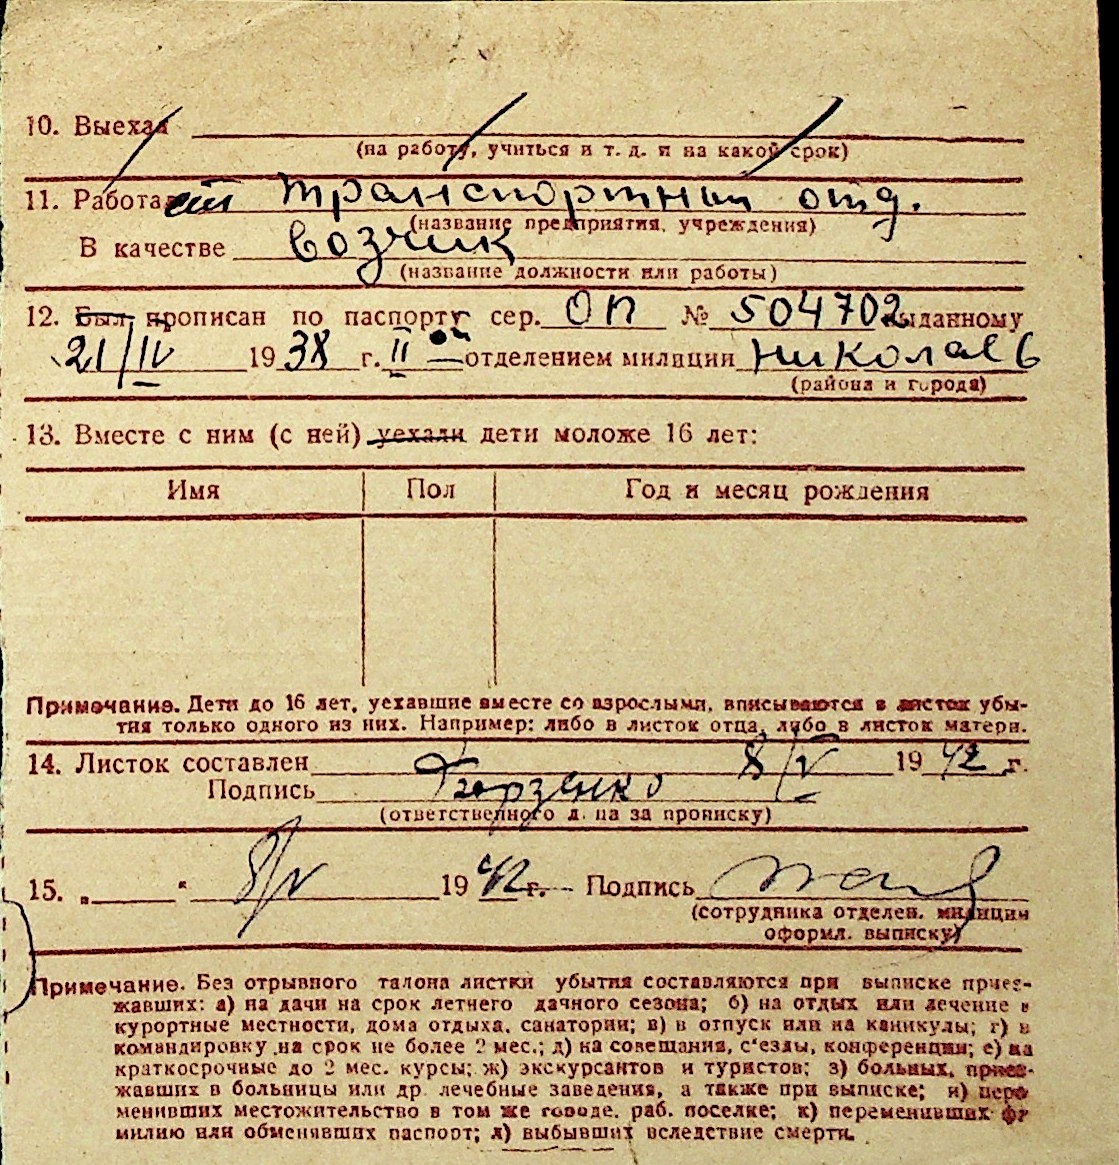 10. Выехал
(на работу, учиться и т. д. и на какой срок)
11. Работает Транспортный отд.
(название предприятия, учреждения)
В качестве возчик
(название должности или работы)
12. Был прописан по паспорту сер. ОП № 504702 выданному
21/IV 1938 г. II ой отделением милиции Николаев
(района и города)
13. Вместе с ним (с ней) уехали дети моложе 16 лет:
Имя Пол Год и месяц рождения
Примечание. Дети до 16 лет, уехавшие вместе со взрослыми, вписываются в листок убы-
тия только одного из них. Например: либо в листок отца, либо в листок матери.
14. Листок составлен 8/V 1942 г.
Подпись
(ответственного л. ца за прописку)
15. „ “ 8/V 1942 г. Подпись
(сотрудника отделен. милиции
оформл. выписку)
Примечание. Без отрывного талона листки убытия составляются при выписке приез-
жавших: а) на дачи на срок летнего дачного сезона; б) на отдых или лечение в
курортные местности, дома отдыха, санатории; в) в отпуск или на каникулы; г) в
командировку на срок не более 2 мес.; д) на совещания, с'езды, конференции; е) на
краткосрочные до 2 мес. курсы; ж) экскурсантов и туристов; з) больных, приез-
жавших в больницы или др. лечебные заведения, а также при выписке; и) пере
менивших местожительство в том же городе, раб. поселке; к) переменивших фа
милию или обменявших паспорт; л) выбывших вследствие смерти.